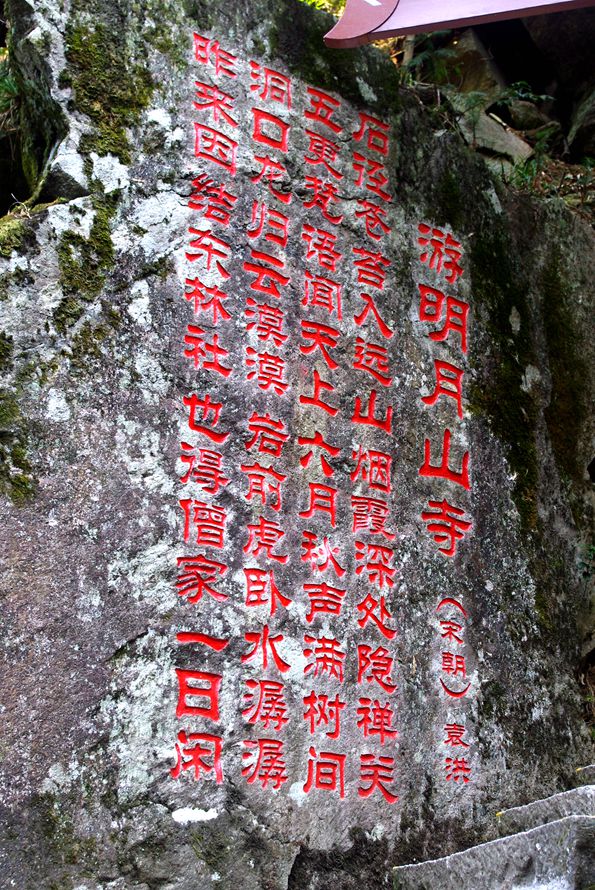 游明月山寺（宋朝）袁洪
石径苍苔入远山烟霞深处隐禅关
五更梵语闻天上六月秋声满树间
洞口龙归云漠漠岩前虎卧水潺潺
昨来因结东林社也得僧家一日闲